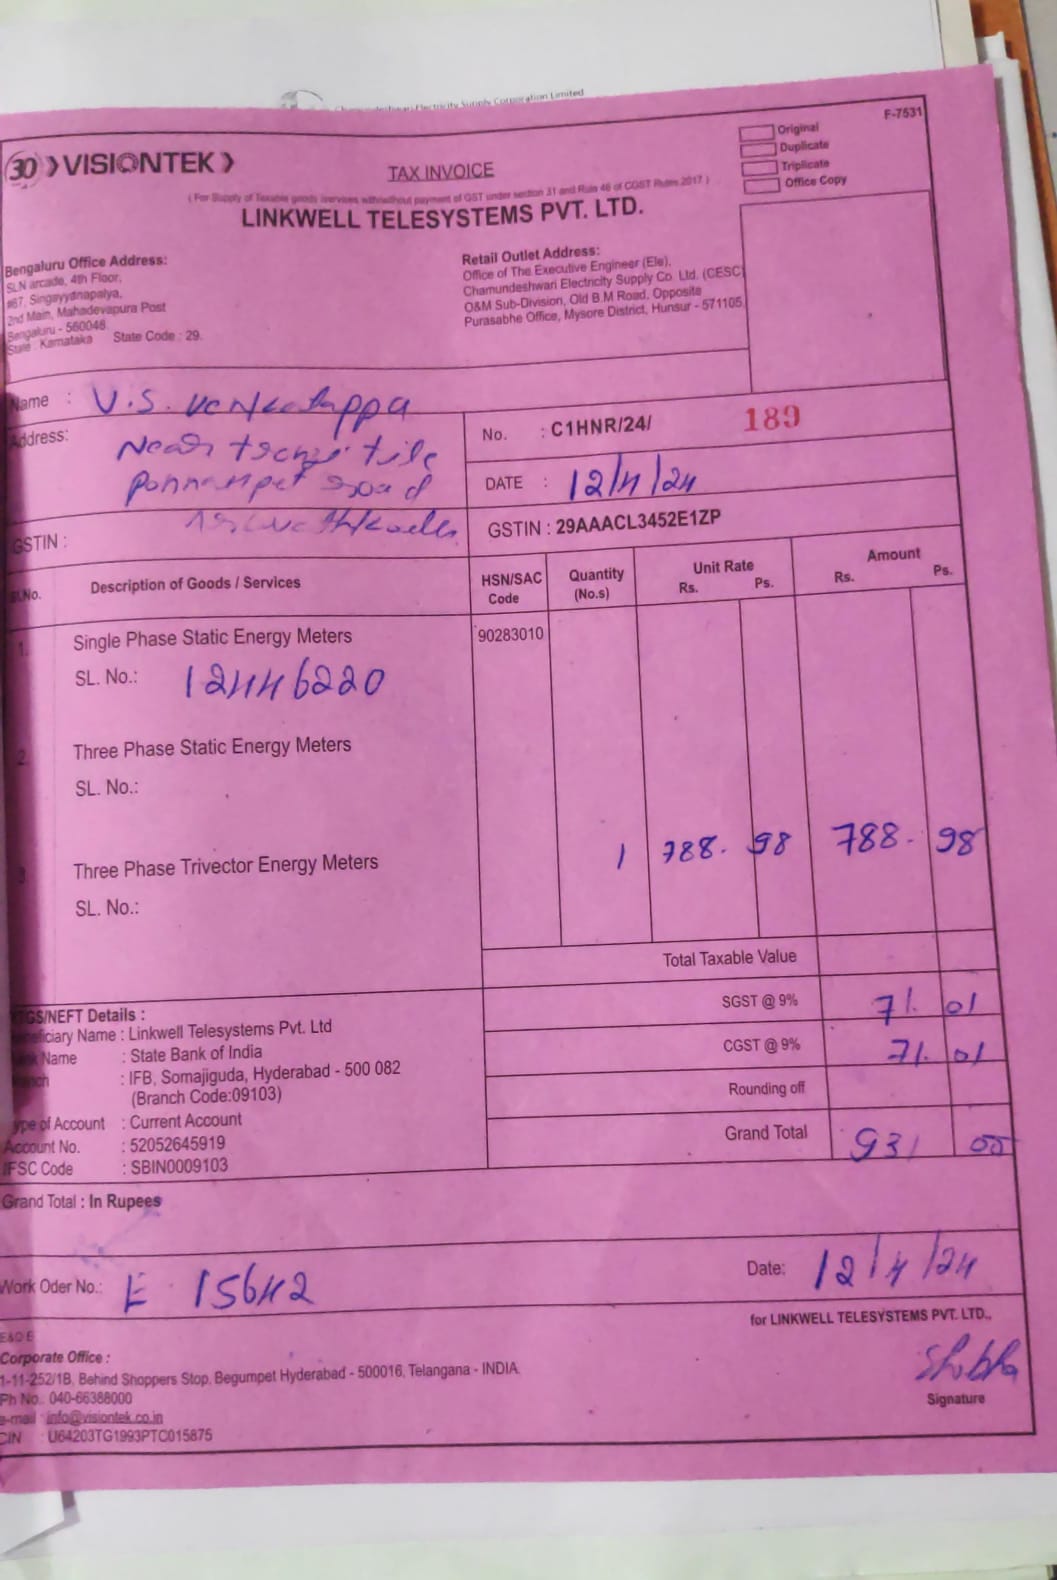 Chamundeshwari Electricity Supply Corporation Limited
F-7531
30 VISIONTEK
TAX INVOICE
Original
Duplicate
Triplicate
Office Copy
( For Supply of Taxable goods /services with/without payment of GST under section 31 and Rule 46 of CGST Rules 2017 )
LINKWELL TELESYSTEMS PVT. LTD.
Bengaluru Office Address:
SLN arcade, 4th Floor,
#67, Singayyanapalya,
2nd Main, Mahadevapura Post
Bengaluru - 560048.
State : Karnataka State Code : 29.
Retail Outlet Address:
Office of The Executive Engineer (Ele),
Chamundeshwari Electricity Supply Co. Ltd. (CESC)
O&M Sub-Division, Old B.M Road, Opposite
Purasabhe Office, Mysore District, Hunsur - 571105.
Name : V.S. Venkatappa
Address: Near
Ponnampet road
No. : C1HNR/24/ 189
DATE : 12/4/24
GSTIN :
GSTIN : 29AAACL3452E1ZP
Sl.No. Description of Goods / Services HSN/SAC Code Quantity (No.s) Unit Rate Rs. Ps. Amount Rs. Ps.
1. Single Phase Static Energy Meters 90283010
SL. No.: 12446220
2. Three Phase Static Energy Meters
SL. No.:
1 788. 98 788. 98
3 Three Phase Trivector Energy Meters
SL. No.:
Total Taxable Value
SGST @ 9% 71. 01
CGST @ 9% 71. 01
Rounding off
Grand Total 931 00
RTGS/NEFT Details :
Beneficiary Name : Linkwell Telesystems Pvt. Ltd
Bank Name : State Bank of India
Branch : IFB, Somajiguda, Hyderabad - 500 082
(Branch Code:09103)
Type of Account : Current Account
Account No. : 52052645919
IFSC Code : SBIN0009103
Grand Total : In Rupees
Work Oder No.: E 15642
Date: 12/4/24
for LINKWELL TELESYSTEMS PVT. LTD.,
Shobha
Signature
E&O E
Corporate Office :
1-11-252/1B, Behind Shoppers Stop, Begumpet Hyderabad - 500016, Telangana - INDIA.
Ph No. 040-66388000
e-mail : info@visiontek.co.in
CIN : U64203TG1993PTC015875